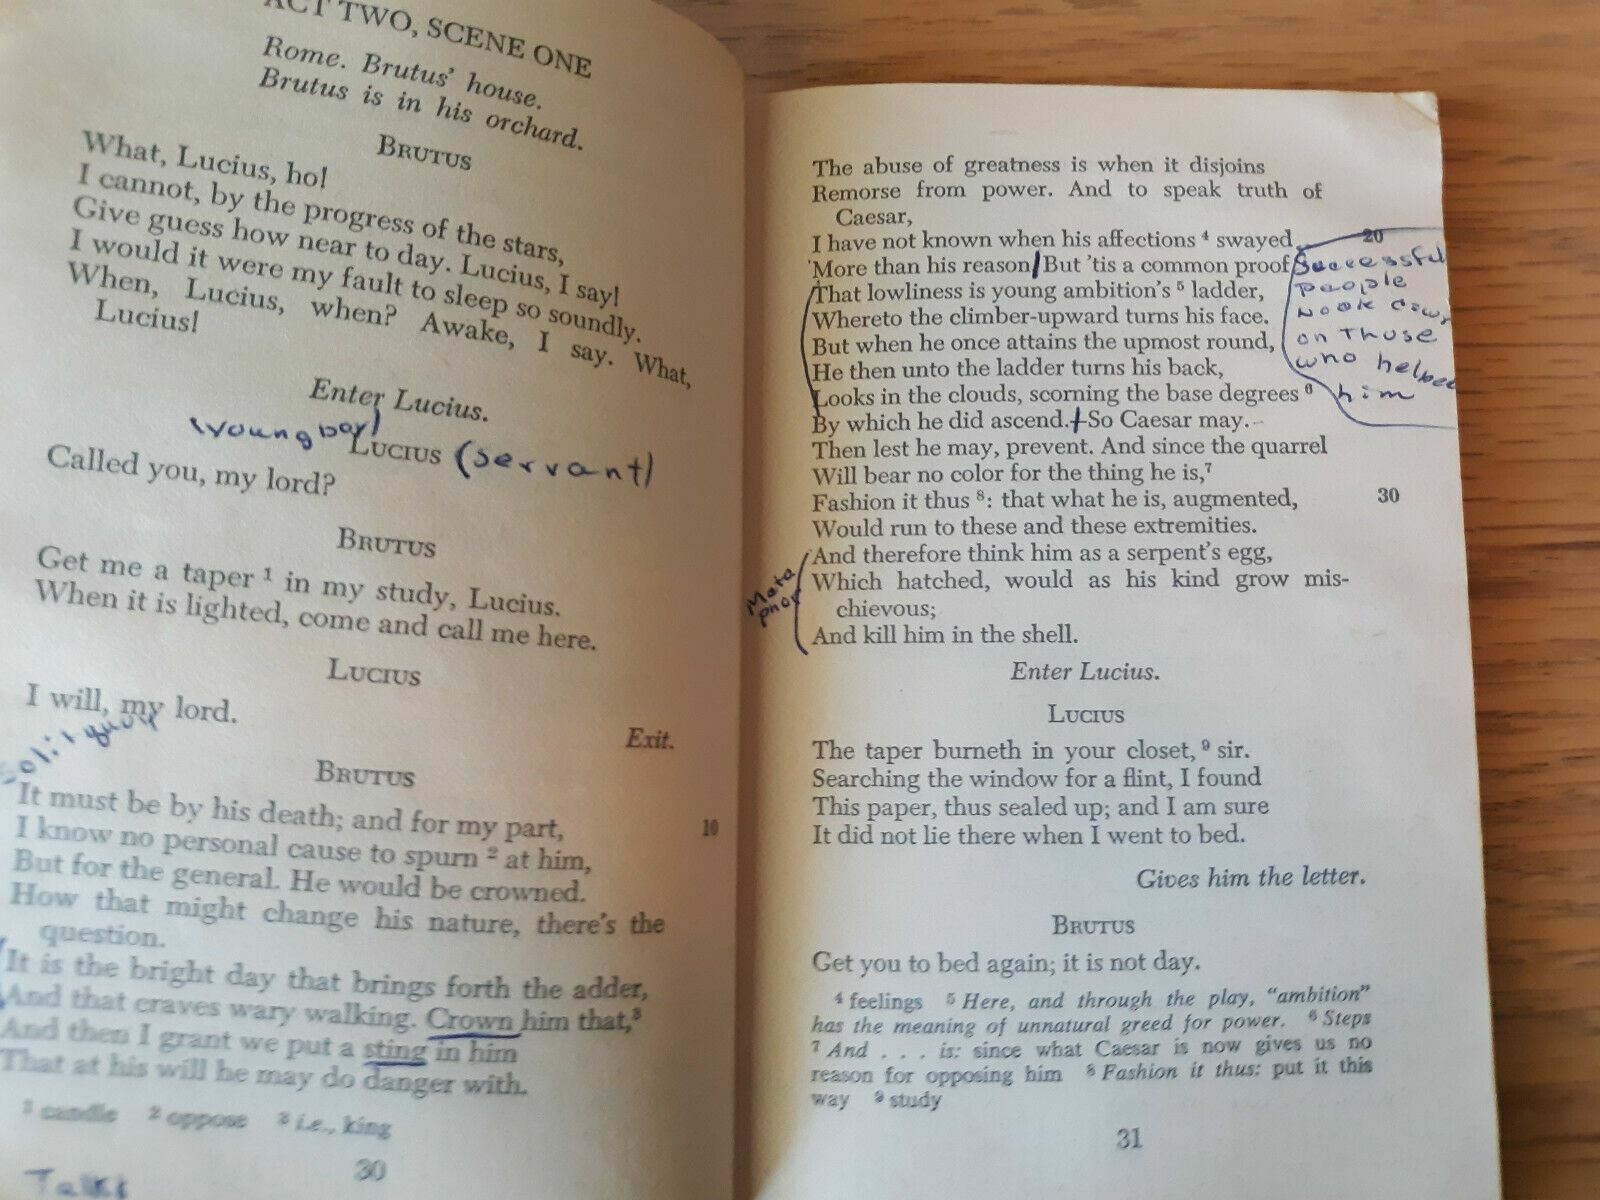 ACT TWO, SCENE ONE
Rome. Brutus' house.
Brutus is in his orchard.
BRUTUS
What, Lucius, ho!
I cannot, by the progress of the stars,
Give guess how near to day. Lucius, I say!
I would it were my fault to sleep so soundly.
When, Lucius, when? Awake, I say. What,
Lucius!
Enter Lucius.
(young boy)
LUCIUS (servant)
Called you, my lord?
BRUTUS
Get me a taper 1 in my study, Lucius.
When it is lighted, come and call me here.
LUCIUS
I will, my lord.
Exit.
Soliloquy
BRUTUS
It must be by his death; and for my part, 10
I know no personal cause to spurn 2 at him,
But for the general. He would be crowned.
How that might change his nature, there's the
question.
It is the bright day that brings forth the adder,
And that craves wary walking. Crown him that,3
And then I grant we put a sting in him
That at his will he may do danger with.
1 candle 2 oppose 3 i.e., king
30
Talks
The abuse of greatness is when it disjoins
Remorse from power. And to speak truth of
Caesar,
I have not known when his affections 4 swayed 20
More than his reason/ But 'tis a common proof
That lowliness is young ambition's 5 ladder,
Whereto the climber-upward turns his face.
But when he once attains the upmost round,
He then unto the ladder turns his back,
Looks in the clouds, scorning the base degrees 6
By which he did ascend. So Caesar may.
Successful
people
look down
on those
who helped
him
Then lest he may, prevent. And since the quarrel
Will bear no color for the thing he is,7
Fashion it thus 8: that what he is, augmented, 30
Would run to these and these extremities.
And therefore think him as a serpent's egg,
Which hatched, would as his kind grow mis-
chievous;
And kill him in the shell.
Meta
phor
Enter Lucius.
LUCIUS
The taper burneth in your closet, 9 sir.
Searching the window for a flint, I found
This paper, thus sealed up; and I am sure
It did not lie there when I went to bed.
Gives him the letter.
BRUTUS
Get you to bed again; it is not day.
4 feelings 5 Here, and through the play, "ambition"
has the meaning of unnatural greed for power. 6 Steps
7 And . . . is: since what Caesar is now gives us no
reason for opposing him 8 Fashion it thus: put it this
way 9 study
31